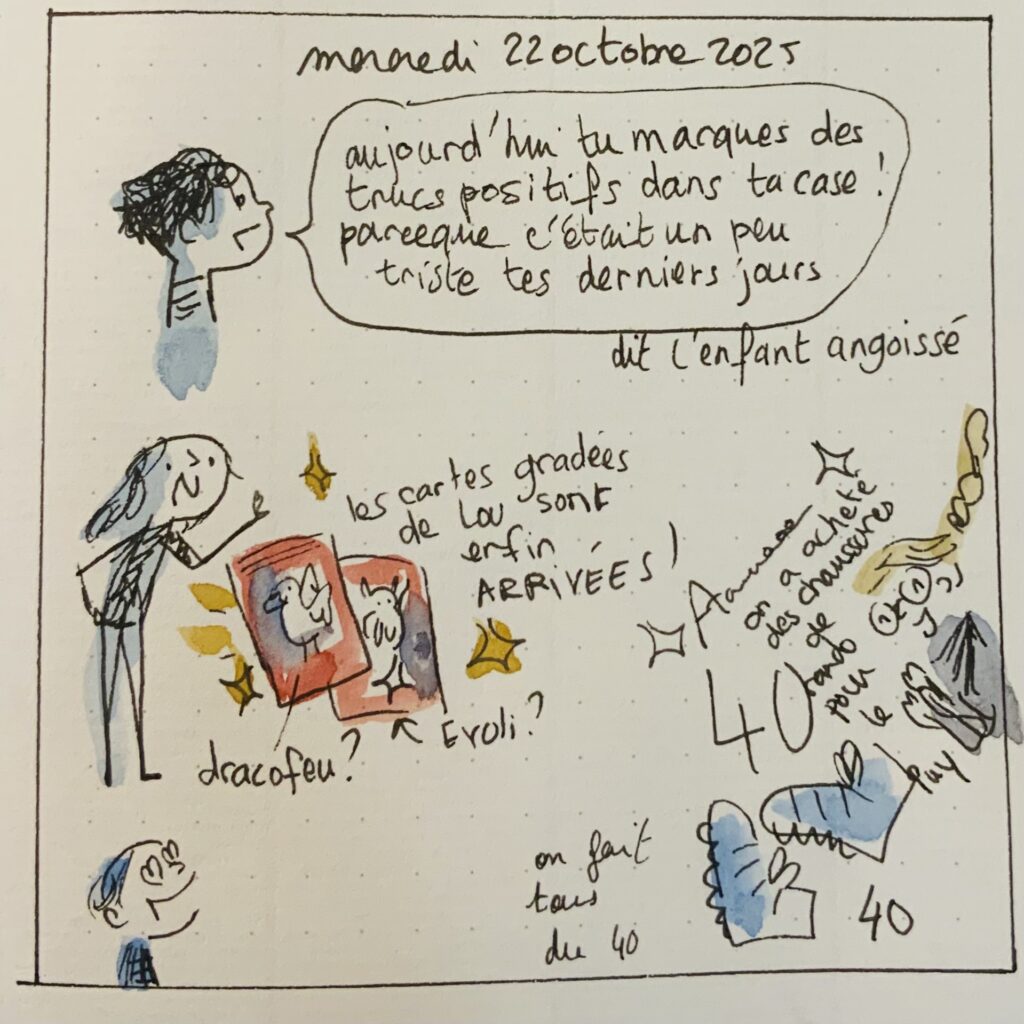 mercredi 22 octobre 2025
aujourd'hui tu marques des
trucs positifs dans ta case !
parceque c'était un peu
triste tes derniers jours
dit l'enfant angoissé
les cartes gradées
de Lou sont
enfin
ARRIVÉES !
dracofeu ?
Evoli ?
on a acheté
des chaussures
de
rando
pour
le
Puy
40
on fait
tous
du 40
40